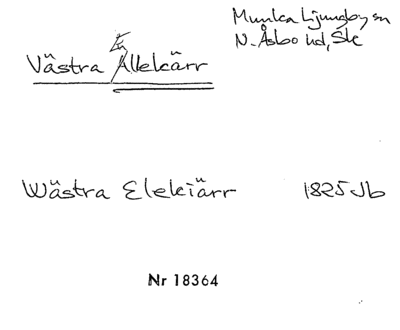 Munka Ljungby sn
N. Åsbo hd, Sk
Västra Ällekärr
Wästra Elekiärr 1825 Jb
Nr 18364